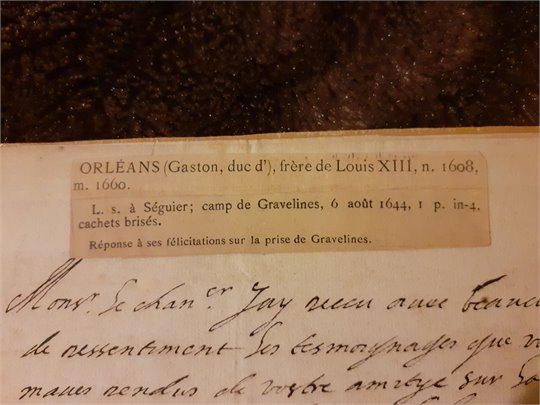 ORLÉANS (Gaston, duc d'), frère de Louis XIII, n. 1608,
m. 1660.
L. s. à Séguier; camp de Gravelines, 6 août 1644, 1 p. in-4,
cachets brisés.
Réponse à ses félicitations sur la prise de Gravelines.
Monsr. le chancer Jay receu avec beauc
de ressentiment les tesmoynages que v
maues rendus de vostre amitye sur la